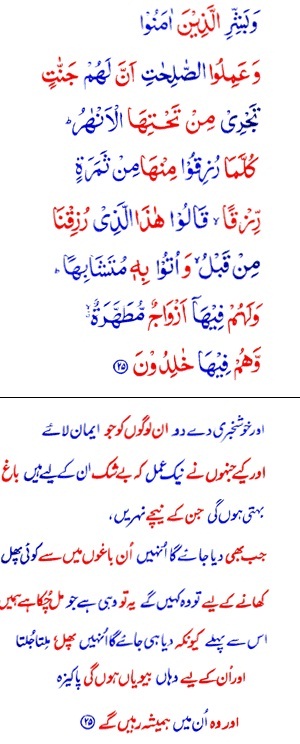 وَبَشِّرِ الَّذِيْنَ اٰمَنُوْا
وَعَمِلُوا الصّٰلِحٰتِ اَنَّ لَهُمْ جَنّٰتٍ
تَجْرِىْ مِنْ تَحْتِهَا الْاَنْهٰرُ ؕ
كُلَّمَا رُزِقُوْا مِنْهَا مِنْ ثَمَرَةٍ
رِّزْقًا ۙ قَالُوْا هٰذَا الَّذِىْ رُزِقْنَا
مِنْ قَبْلُ ۙ وَاُتُوْا بِهٖ مُتَشَابِهًا ؕ
وَلَهُمْ فِيْهَآ اَزْوَاجٌ مُّطَهَّرَةٌ ۙ
وَّهُمْ فِيْهَا خٰلِدُوْنَ ﴿۲۵﴾
اور خوشخبری دے دو ان لوگوں کو جو ایمان لائے
اور کیے جنہوں نے نیک عمل کہ بے شک ان کے لیے ہیں باغ
بہتی ہوں گی جن کے نیچے نہریں،
جب بھی دیا جائے گا اُنہیں اُن باغوں میں سے کوئی پھل
کھانے کے لیے تو وہ کہیں گے یہ تو وہی ہے جو مل چُکا ہے ہمیں
اس سے پہلے کیونکہ دیا ہی جائے گا اُنہیں پھل مِلتا جُلتا
اور اُن کے لیے وہاں بیویاں ہوں گی پاکیزہ
اور وہ اُن میں ہمیشہ رہیں گے ﴿۲۵﴾